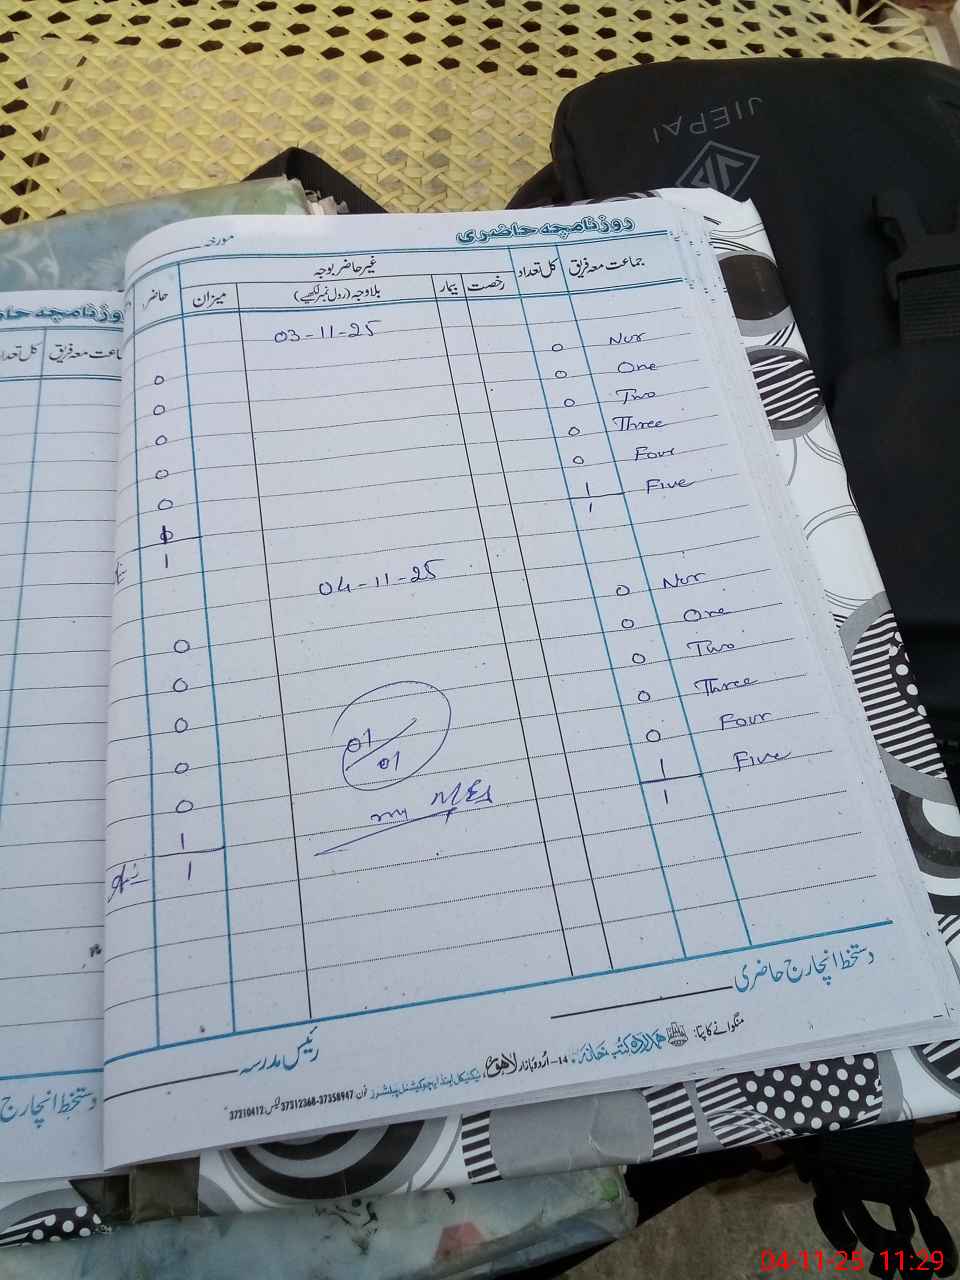 JIEPAI
روزنامچہ حاضری
مورخہ
جماعت معہ فریق کل تعداد غیر حاضر بوجہ حاضر
رخصت بیمار بلاوجہ (رول نمبر لکھیے) میزان
03-11-25
Nur 0 0
One 0 0
Two 0 0
Three 0 0
Four 0 0
Five 1
1 1
04-11-25
Nur 0 0
One 0 0
Two 0 0
Three 0 0
Four 0 0
Five 1 1
1 1
01/01
دستخط انچارج حاضری
رئیس مدرسہ
منگوانے کا پتہ: ہمدرد کتب خانہ 14-اُردو بازار لاہور، ٹیکنیکل اینڈ ایجوکیشنل پبلشرز فون 37358947-37312368 فیکس 37210412
روزنامچہ حاضری
جماعت معہ فریق کل تعداد
دستخط انچارج
04-11-25 11:29